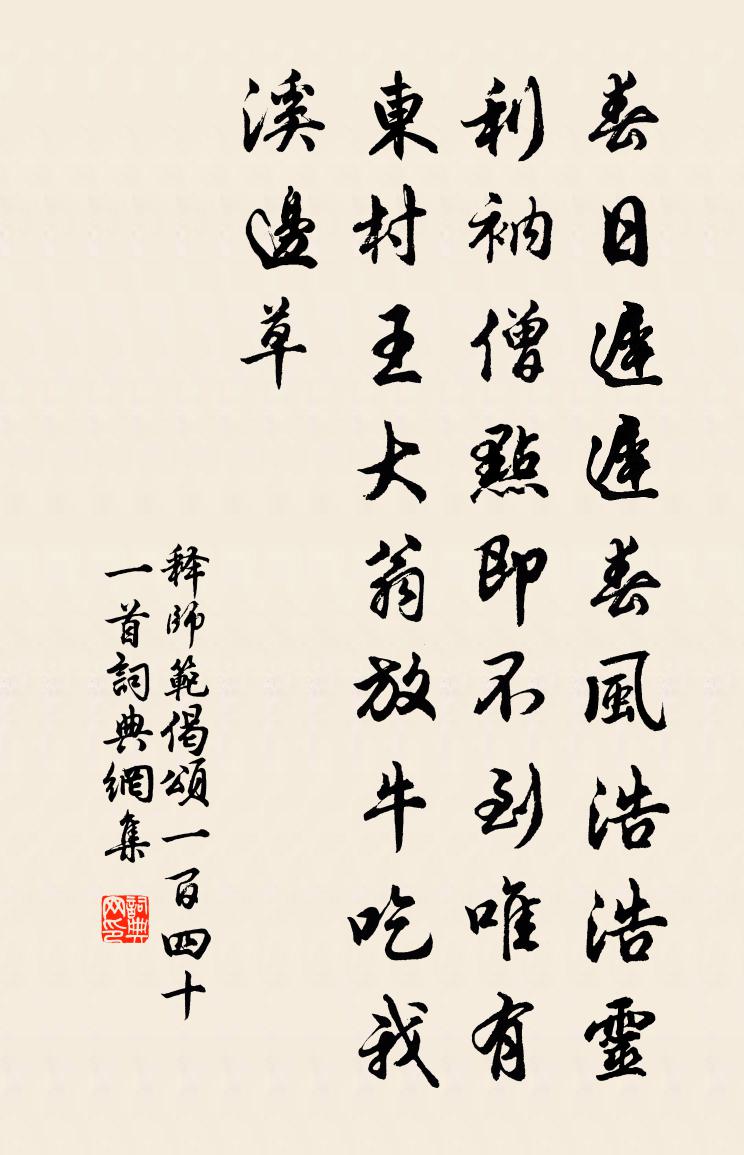 春日遲遲春風浩浩靈
利衲僧點即不到唯有
東村王大翁放牛吃我
溪邊草
释師範偈頌一百四十
一首詞典網集
詞典网印